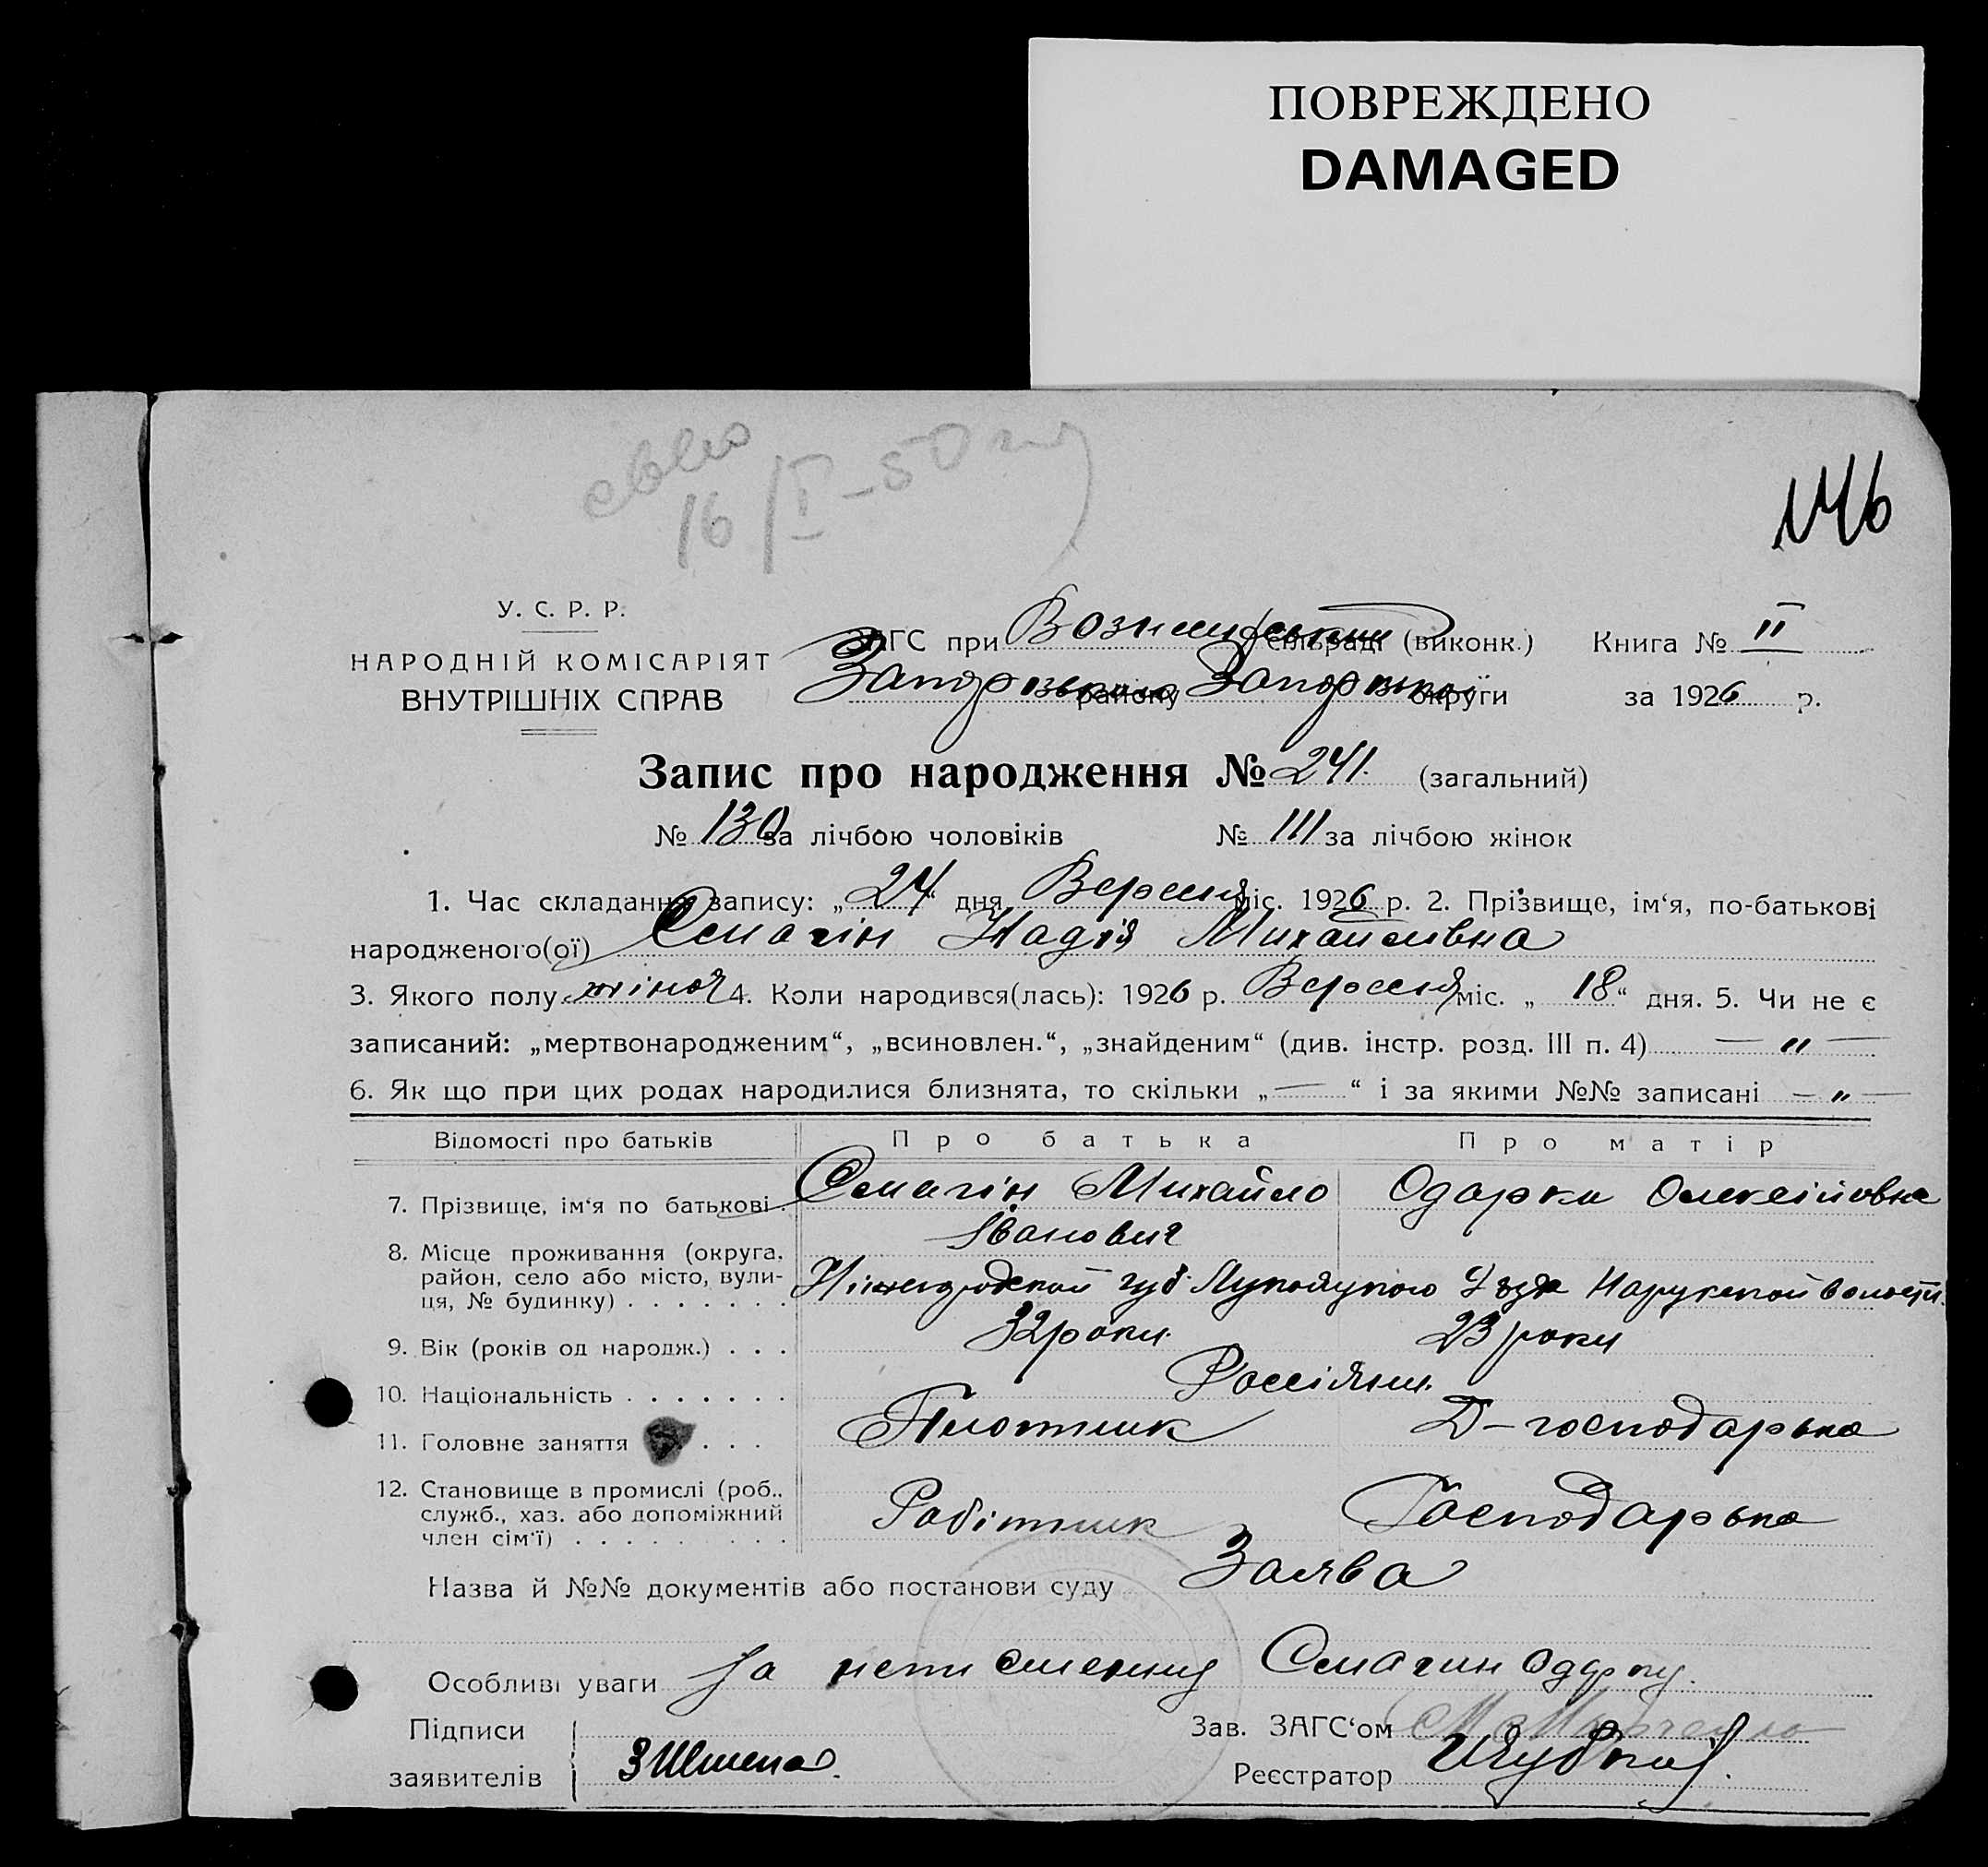 ПОВРЕЖДЕНО
DAMAGED
16/I-50
146
У. С. Р. Р.
НАРОДНІЙ КОМІСАРІЯТ
ВНУТРІШНІХ СПРАВ
ЗАГС при сільраді (виконк.) Книга № II
району округи за 1926 р.
Запис про народження № 241. (загальний)
№ 130 за лічбою чоловіків № 111 за лічбою жінок
1. Час складання запису: „24“ дня Вересня міс. 1926 р. 2. Прізвище, ім‘я, по-батькові
народженого(ої) Смагін Надія Михайлівна
3. Якого полу жіноч 4. Коли народився(лась): 1926 р. Вересня міс. „18“ дня. 5. Чи не є
записаний: „мертвонародженим“, „всиновлен.“, „знайденим“ (див. інстр. розд. III п. 4) — „ —
6. Як що при цих родах народилися близнята, то скільки „—“ і за якими №№ записані — „ —
Відомості про батьків Про батька Про матір
7. Прізвище, ім‘я по батькові . Смагін Михайло Одарка Олексійовна
Іванович
8. Місце проживання (округа,
район, село або місто, вули-
ця, № будинку) . . . . . . . Ніжегородской губ Лукояцкого Уезда Нарукской волости.
9. Вік (років од народж.) . . . 32 роки. 23 роки
10. Національність . . . . . . . Россіяни.
11. Головне заняття . . . Плотник Д-господарька
12. Становище в промислі (роб.,
служб., хаз. або допоміжний
член сім‘ї) . . . . . . . . . Робітник Господарька
Назва й №№ документів або постанови суду Заява
Особливі уваги За Смагин Одарку.
Підписи Зав. ЗАГС‘ом
заявителів Реєстратор